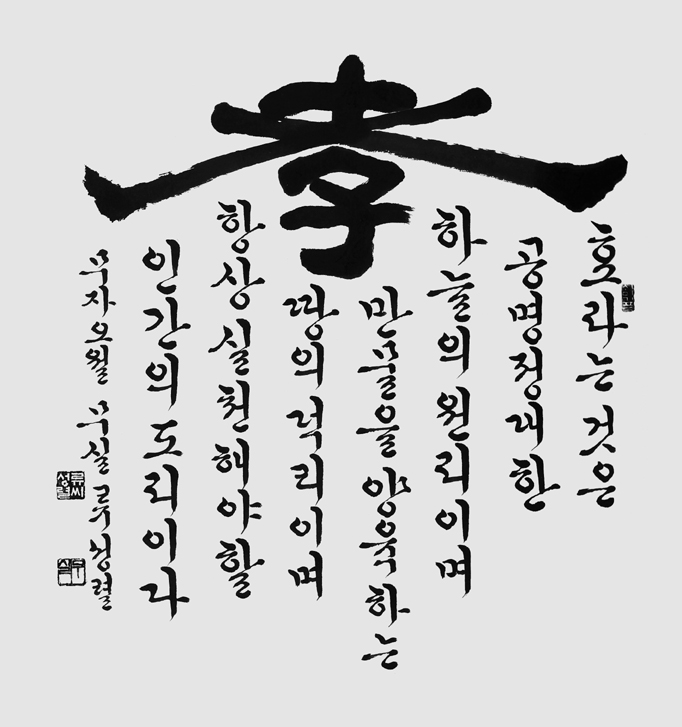 孝
효라는 것은
공명정대한
하늘의 원리이며
만물을 양육하는
땅의 덕리이며
항상 실천해야할
인간의 도리이라
무자오월 무실 류성렬